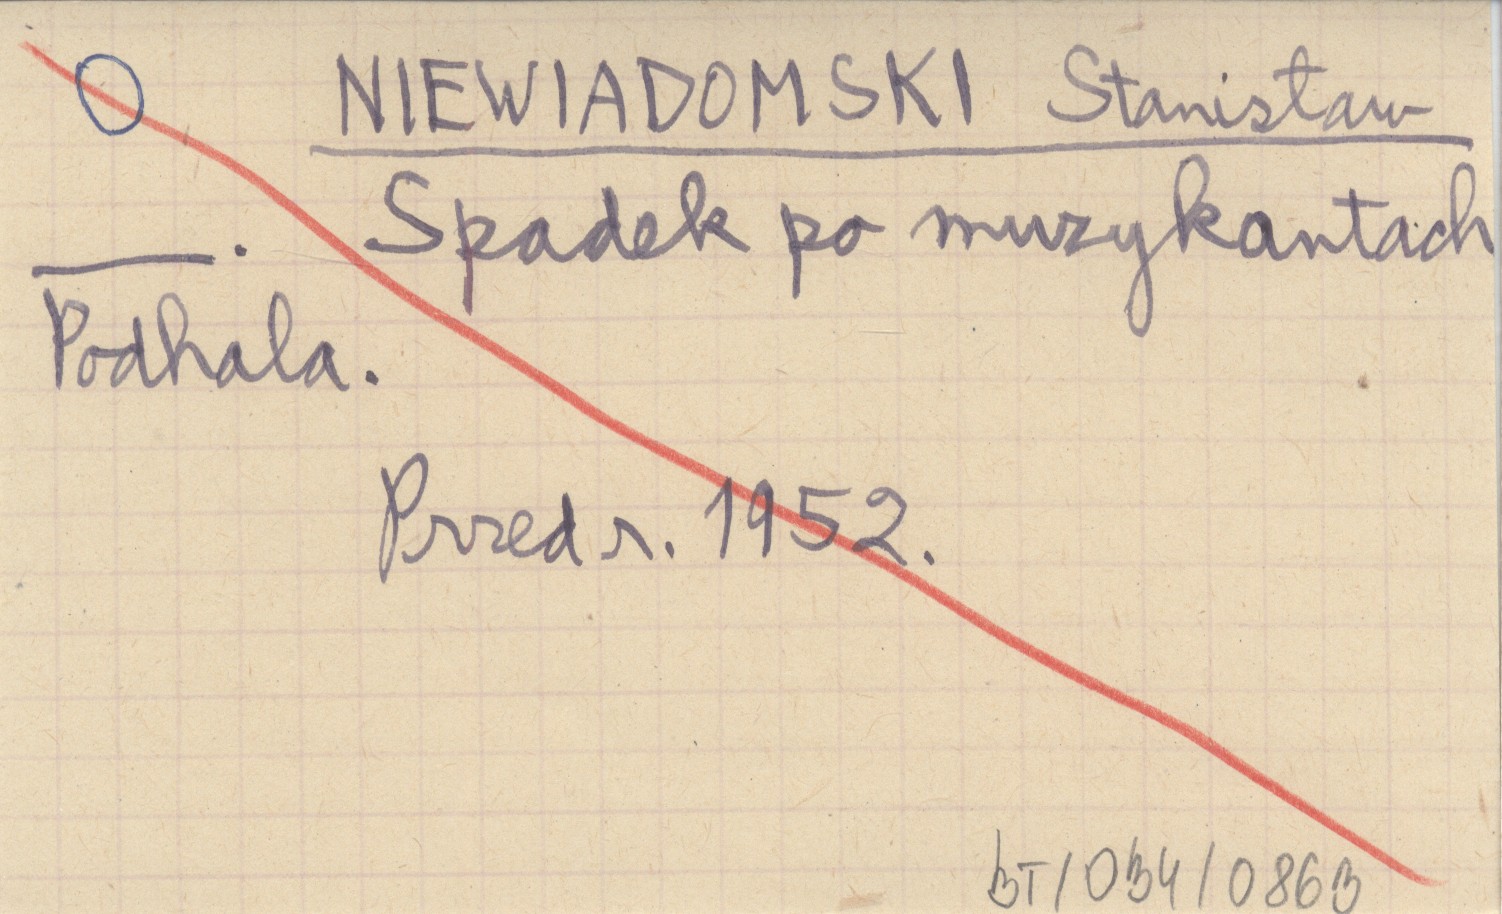 NIEWIADOMSKI Stanisław
———. Spadek po muzykantach
Podhala.
Przed r. 1952.
BT/034/0863